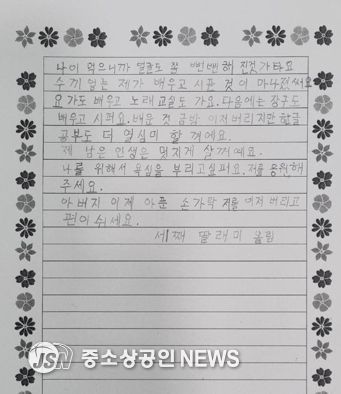 나이 먹으니까 얼굴도 좀 뻔뻔해 진것 가타요
수끼 없는 제가 배우고 시픈 것이 마나졌써요
요가도 배우고 노래교실도 가요. 다음에는 장구도
배우고 시퍼요. 배운 것 금방 이저버리지만 한글
공부도 더 열심미 할 꺼에요.
제 남은 인생은 멋지게 살꺼예요.
나를 위해서 욕심을 부리고 십퍼요. 저를 응원해
주세요.
아버지 이제 아푼 손가락 저를 이저 버리고
편이 쉬세요.
세째 딸래미 올림
JSN 중소상공인 NEWS